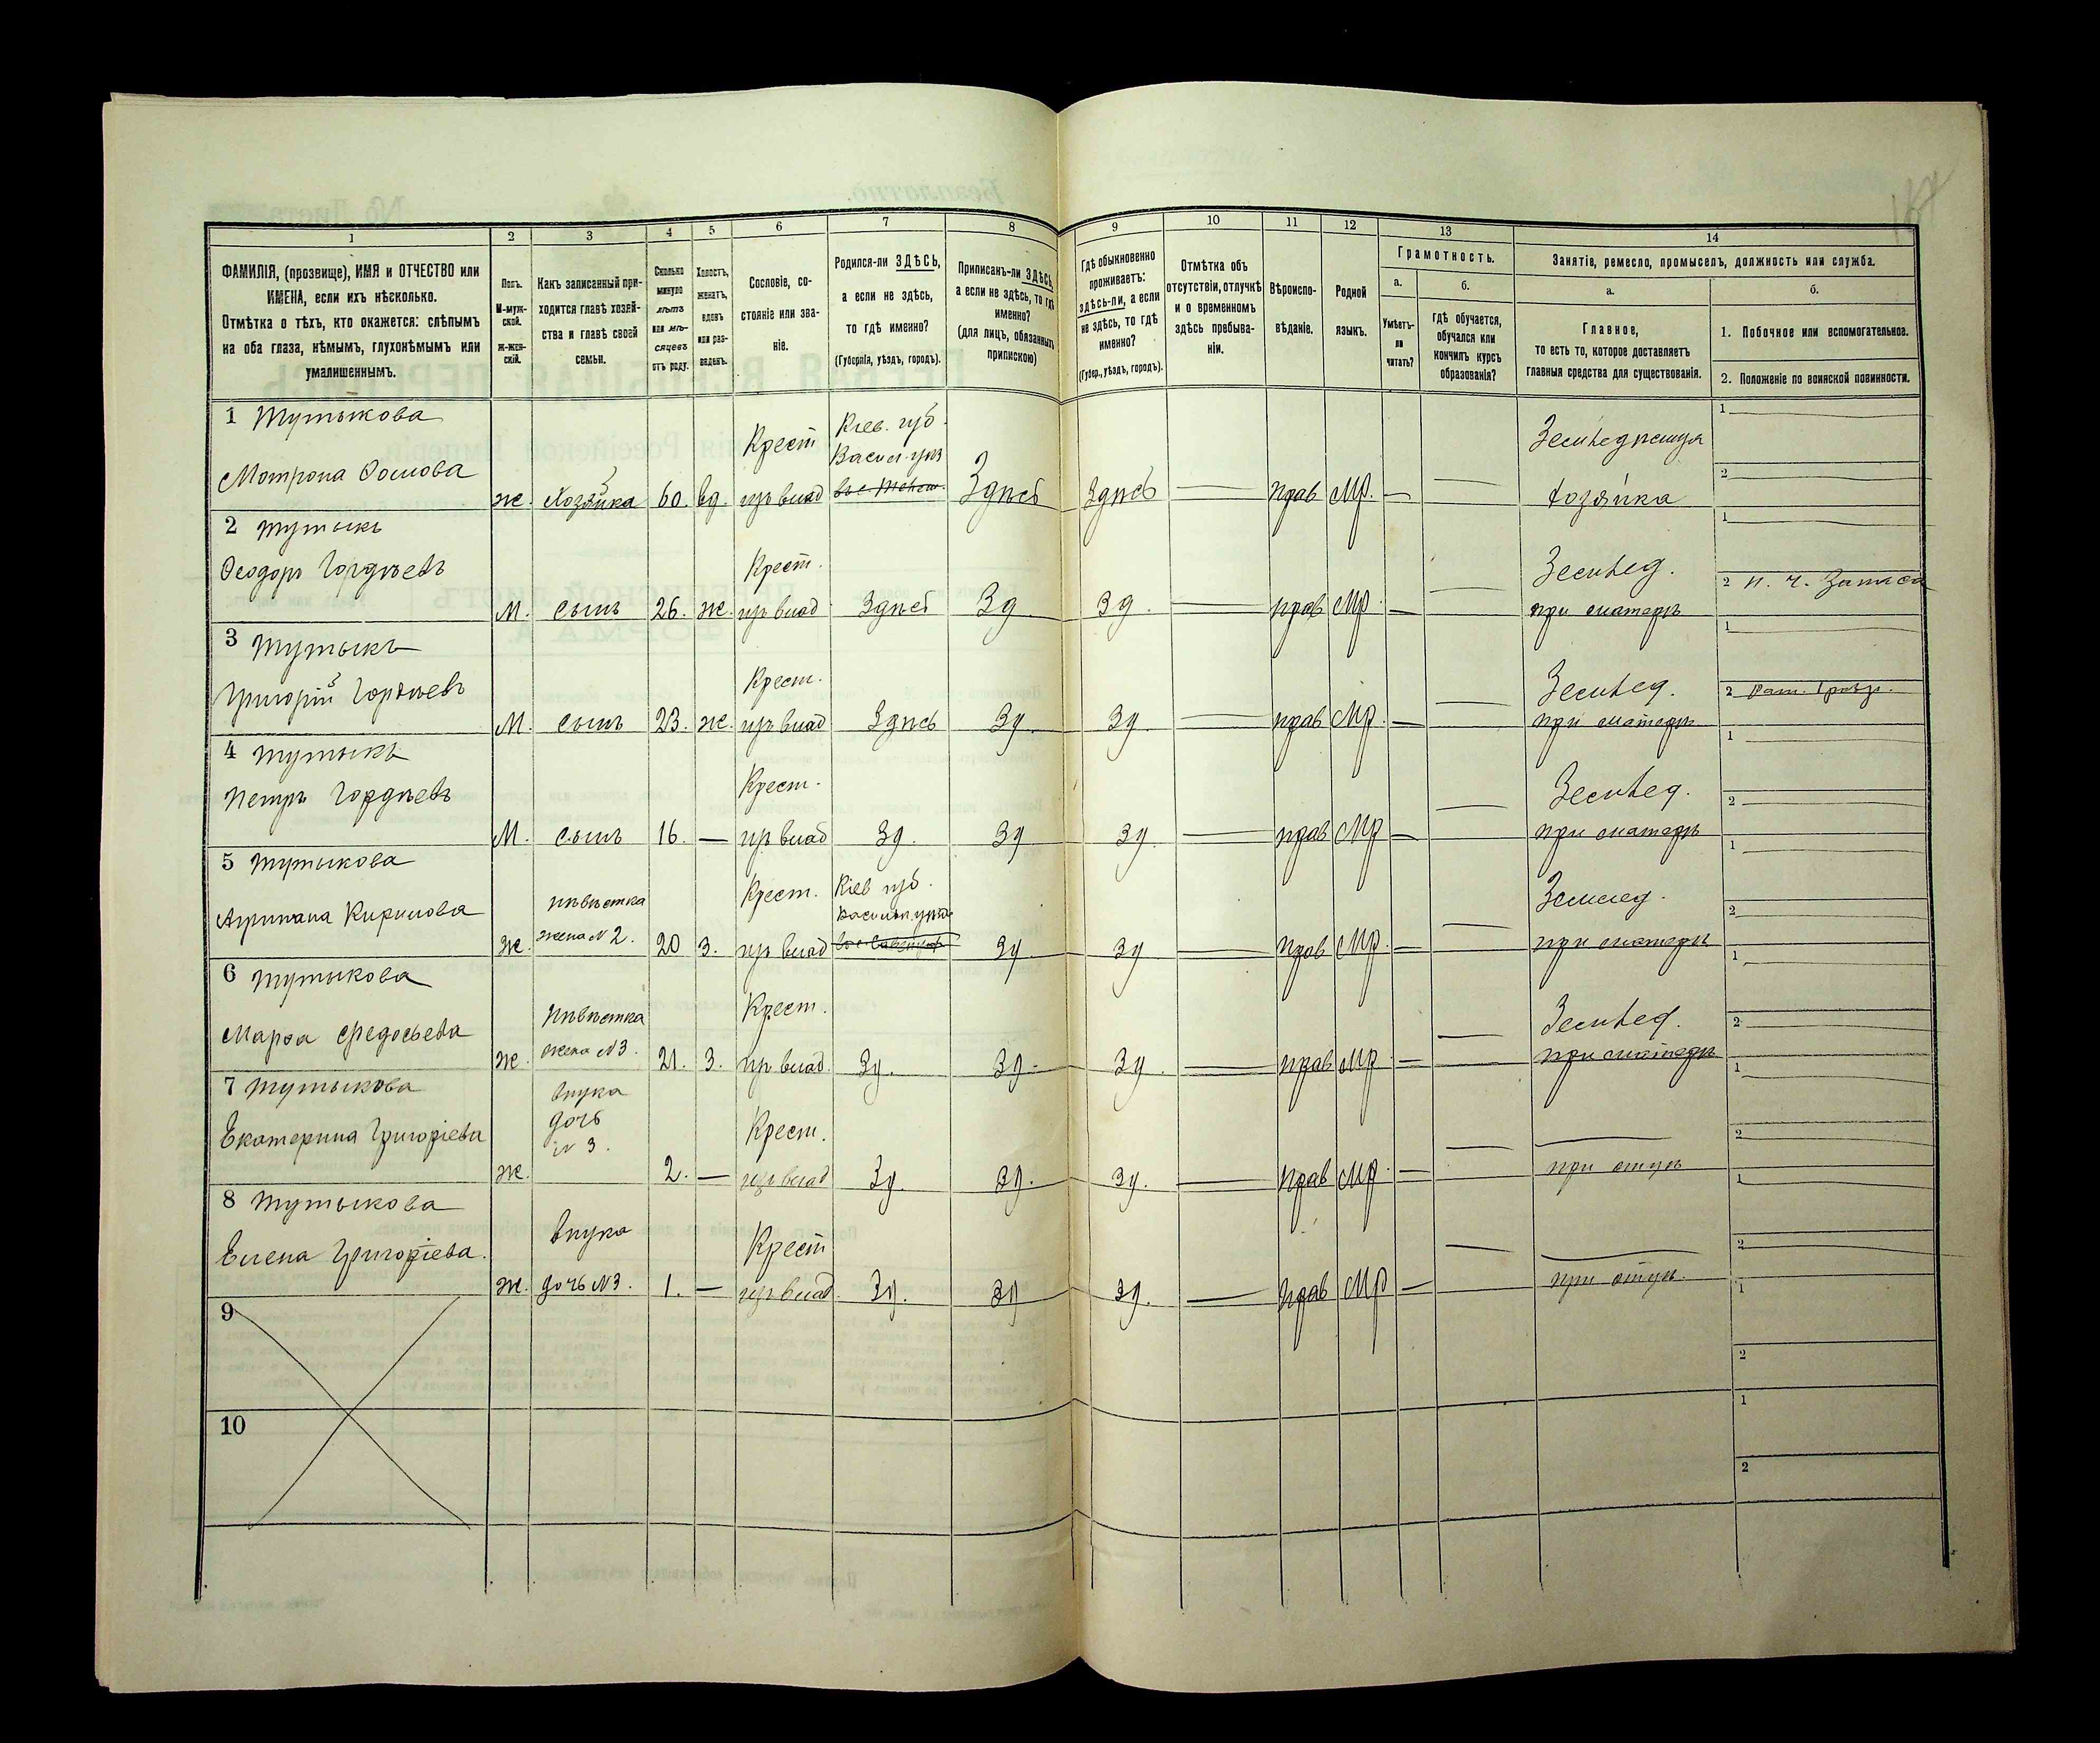 1 2 3 4 5 6 7 8 9 10 11 12 13 14
ФАМИЛІЯ, (прозвище), ИМЯ и ОТЧЕСТВО или
ИМЕНА, если ихъ нѣсколько.
Отмѣтка о тѣхъ, кто окажется: слѣпымъ
на оба глаза, нѣмымъ, глухонѣмымъ или
умалишеннымъ.
Полъ.
М-муж-
ской.
ж-жен-
скій.
Какъ записанный при-
ходится главѣ хозяй-
ства и главѣ своей
семьи.
Сколько
минуло
лѣтъ
или мѣ-
сяцевъ
отъ роду.
Холостъ,
женатъ,
вдовъ
или раз-
веденъ.
Сословіе, со-
стояніе или зва-
ніе.
Родился-ли ЗДѢСЬ,
а если не здѣсь,
то гдѣ именно?
(Губернія, уѣздъ, городъ).
Приписанъ-ли ЗДѢСЬ,
а если не здѣсь, то гдѣ
именно?
(для лицъ, обязанныхъ
припискою)
Гдѣ обыкновенно
проживаетъ:
здѣсь-ли, а если
не здѣсь, то гдѣ
именно?
(Губер., уѣздъ, городъ).
Отмѣтка объ
отсутствіи, отлучкѣ
и о временномъ
здѣсь пребыва-
ніи.
Вѣроиспо-
вѣданіе.
Родной
языкъ.
Грамотность.
а.
Умѣетъ-
ли
читать?
б.
гдѣ обучается,
обучался или
кончилъ курсъ
образованія?
Занятіе, ремесло, промыселъ, должность или служба.
а.
Главное,
то есть то, которое доставляетъ
главныя средства для существованія.
б.
1. Побочное или вспомогательное.
2. Положеніе по воинской повинности.
1 Тутыкова Крест Кіев. губ. 1
Васил. уѣз
Мотрона Ѳомова ж. Хозяйка 60. вд. изъ влад Здѣсь Здѣсь — прав Мр. — — Хозяйка 2
2 Тутыкъ Крест. Землед. 1
Ѳеодоръ Гордѣевъ М. сынъ 26. ж. изъ влад Здѣсь Зд Зд. — прав Мр. — — при матери 2
3 Тутыкъ Крест. Землед. 1
Григорій Гордѣевъ М. сынъ 23. ж. изъ влад Здѣсь Зд Зд. — прав Мр. — — при матери 2
4 Тутыкъ Крест. Землед. 1
Петръ Гордѣевъ М. сынъ 16. — изъ влад Зд. Зд Зд. — прав Мр — — при матери 2
5 Тутыкова невѣстка Крест. Кіев губ. Землед. 1
Кирилова ж. жена N 2. 20 З. изъ влад Зд Зд — прав Мр. — — при матери 2
6 Тутыкова Невѣстка Крест. Землед. 1
Марѳа Ѳедосьева ж. жена N 3. 21. З. изъ влад. Зд. Зд. Зд. — прав Мр — — при матери 2
7 Тутыкова внука Крест. 1
дочь
Екатерина Григоріева ж. N 3. 2. — изъ влад Зд. Зд. Зд. — прав Мр — — при отцѣ 2
8 Тутыкова внука Крест 1
Елена Григоріева. ж. дочь N 3. 1. — изъ влад. Зд. Зд Зд. — прав Мр — — при отцѣ. 2
9 1
2
10 1
2